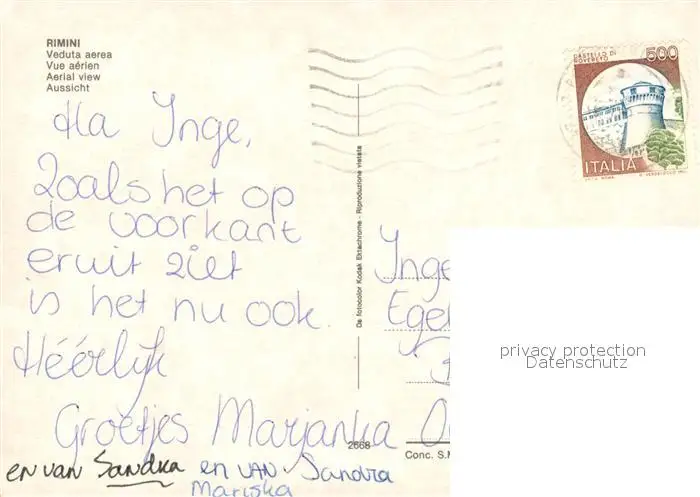 RIMINI
Veduta aerea
Vue aérien
Aerial view
Aussicht
Ha Inge,
Zoals het op
de voorkant
eruit ziet
is het nu ook.
Héérlijk
Groetjes Marjanka
en van Sandra en van Sandra
Mariska
De fotocolor Kodak Ektachrome - Riproduzione vietata
2668
CASTELLO DI
ROVERETO
500
ITALIA
Inge
Egel
Conc. S.M
privacy protection
Datenschutz